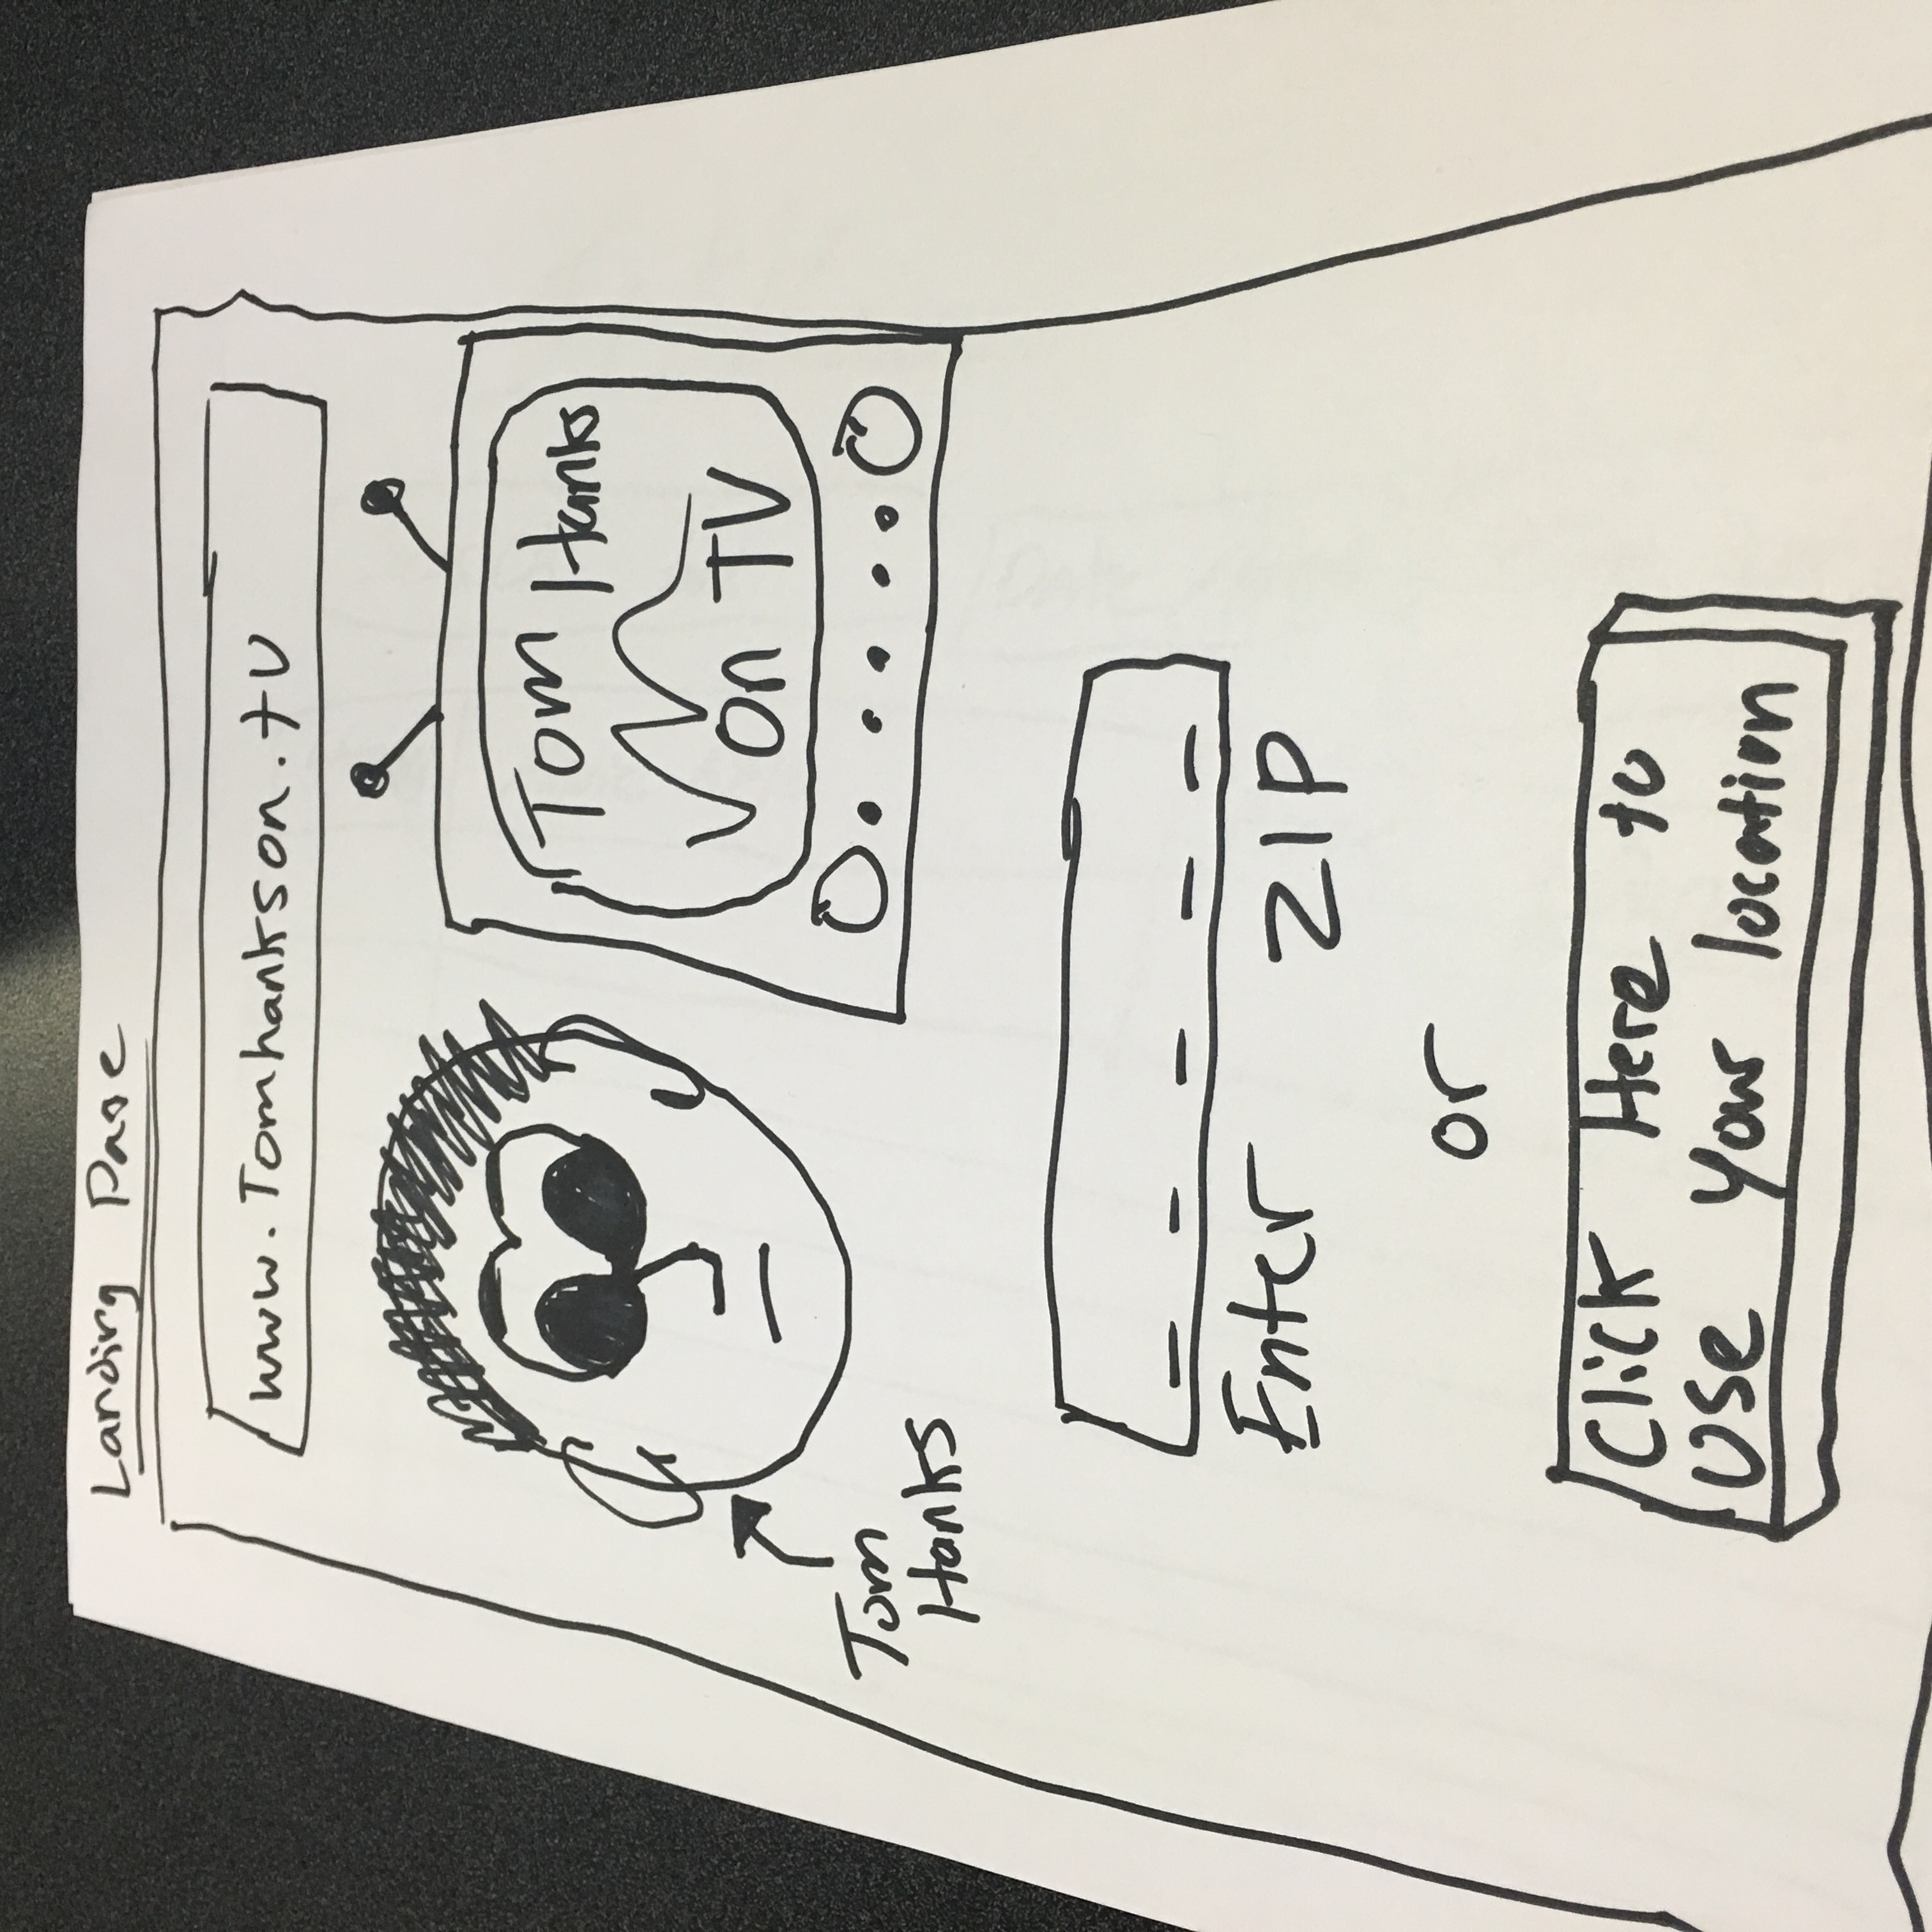 Landing Page
www.Tomhankson.tv
Tom Hanks
on TV
Tom
Hanks
Enter ZIP
or
Click Here to
Use your location